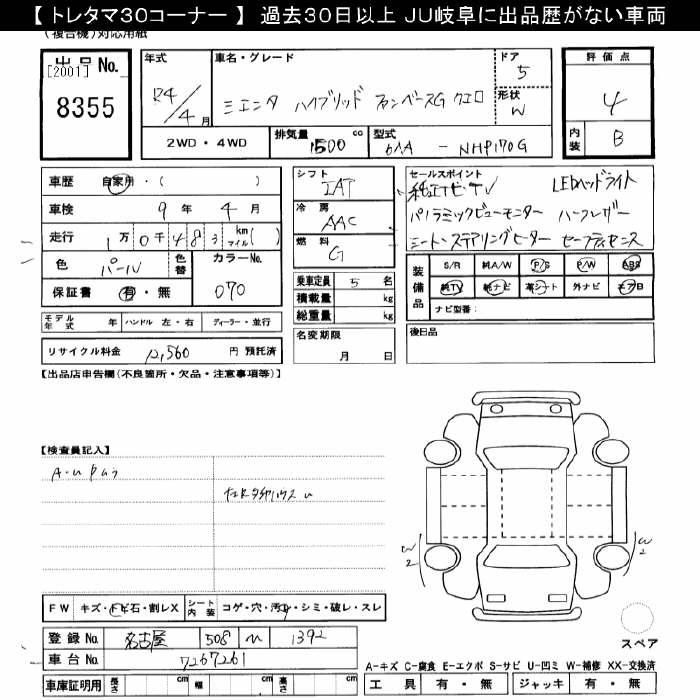 【 トレタマ30コーナー 】 過去30日以上 JU岐阜に出品歴がない車両
(複合機)対応用紙
出品 No.
[2001]
8355
年式
R4/4月
車名・グレード
シエンタ ハイブリッド ファンベースG クエロ
ドア
5
形状
W
評価点
4
内装
B
2WD・4WD
排気量
1500 cc
型式
6AA - NHP170G
車歴 自家用・( )
車検 9年 4月
走行 1万0千483 km マイル( )
色 パール
色替
カラーNo.
070
保証書 有・無
モデル年式 年 ハンドル 左・右 ディーラー・並行
リサイクル料金 12,560 円 預託済
シフト
IAT
冷房
AAC
燃料
G
乗車定員 5 名
積載量 kg
総重量 kg
名変期限
月 日
セールスポイント
純正ナビTV LEDヘッドライト
パノラミックビューモニター ハーフレザー
シート・ステアリングヒーター セーフティセンス
装備品
S/R 純A/W P/S P/W ABS
純TV 純ナビ 革シート 外ナビ エアB
ナビ型番:
後日品
【出品店申告欄(不良箇所・欠品・注意事項等)】
【検査員記入】
FW キズ・トビ石・割レX
シート内装 コゲ・穴・汚レ・シミ・破レ・スレ
W2
W2
スペア
登録 No. 名古屋 508 1392
車台 No. 7267261
車庫証明用 長さ cm 幅 cm 高さ cm
A-キズ C-腐食 E-エクボ S-サビ U-凹ミ W-補修 XX-交換済
工具 有・無 ジャッキ 有・無